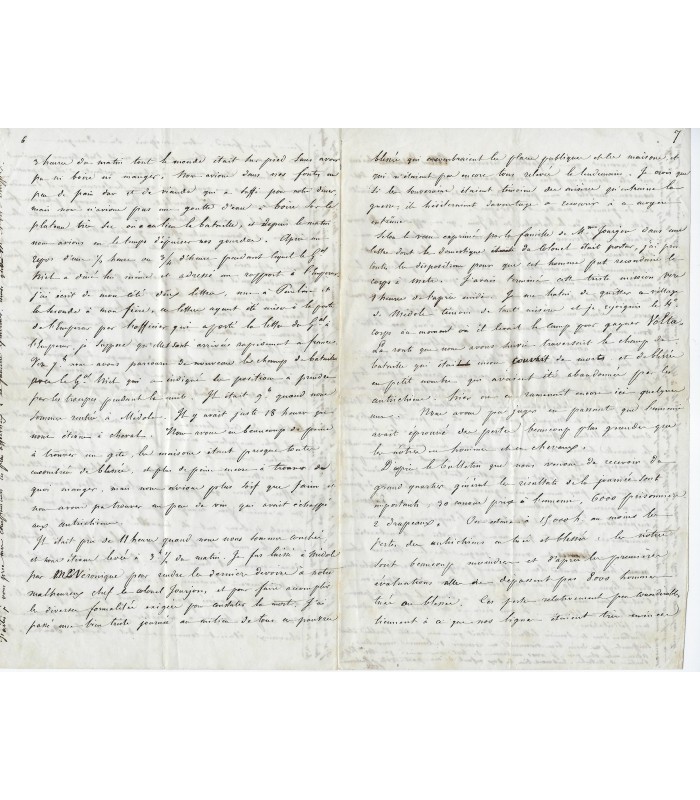 6
3 heures du matin tout le monde était sur pied sans avoir
pu ni boire ni manger. Nous avions dans nos fontes un
peu de pain dur et de viande qui a suffi pour notre diner
mais nous n'avions pas une goutte d'eau à boire sur le
plateau où a eu lieu la bataille, et depuis le matin
nous avions eu le temps d'épuiser nos gourdes. Après un
repos d'une 1/2 heure ou 3/4 d'heure pendant lequel le Gal
Niel a adressé un rapport à l'Empereur
j'ai écrit de mon côté deux lettres, une à Pauline et
la seconde à mon frère, ces lettres ayant été mises à la poste
de l'Empereur par l'officier qui a porté la lettre du Gal à
l'Empereur, je suppose qu'elles sont arrivées rapidement
nous avons parcouru de nouveau le champ de bataille
avec le Gal Niel qui a indiqué les positions à prendre
par les troupes pendant la nuit. Il était 9h quand nous
sommes rentrés à Medole. Il y avait juste 18 heures que
nous étions à cheval. Nous avons eu beaucoup de peine
à trouver un gîte, les maisons étant presque toutes
encombrées de blessés, et plus de peine encore à trouver de
quoi manger, mais nous avions plus soif que faim et
nous avons pu trouver un peu de vin qui avait échappé
aux autrichiens.
Il était près de 11 heures quand nous nous sommes couchés
et nous étions levés à 3h 1/2 du matin. Je fus laissé à Medole
par pour rendre les derniers devoirs à notre
malheureux chef le colonel Jourjon, et pour faire accomplir
les diverses formalités exigées pour constater la mort. J'ai
passé une bien triste journée au milieu de tous ces pauvres
7
blessés qui encombraient les places publiques et les maisons et
qui n'étaient pas encore tous relevés le lendemain. Je crois que
si les souverains étaient témoins des misères qu'entraine la
guerre, ils hésiteraient davantage à recourir à ce moyen
extrême
Selon le vœu exprimé par la famille de Mme Jourjon dans une
lettre dont le domestique du Colonel était porteur, j'ai pris
toutes les dispositions pour que cet homme put reconduire le
corps à Metz. J'avais terminé cette triste mission vers
heures de l'après midi. Je me hâtai de quitter ce village
de Medole témoin de tant de misères et je rejoignis le 4e
corps au moment où il levait le camp pour gagner Volta
La route que nous avons suivie traversait le champ de
bataille qui était encore couvert de morts et de blessés
en petit nombre qui avaient été abandonnés par les
autrichiens. Hier on en ramenait encore ici quelques
uns. Nous avons pu juger en passant que l'ennemi
avait éprouvé des pertes beaucoup plus grandes que
les nôtres en hommes et en chevaux.
D'après le bulletin que nous venons de recevoir du
grand quartier général les résultats de la journée sont
importants, 30 canons pris à l'ennemi, 6000 prisonniers
2 drapeaux. On estime à 15,000 h au moins les
pertes des autrichiens en tués et blessés; les nôtres
sont beaucoup moindres et d'après les premières
évaluations elles ne dépassent pas hommes
tués ou blessés. Ces pertes relativement peu considérables
tiennent à ce que nos lignes étaient très minces